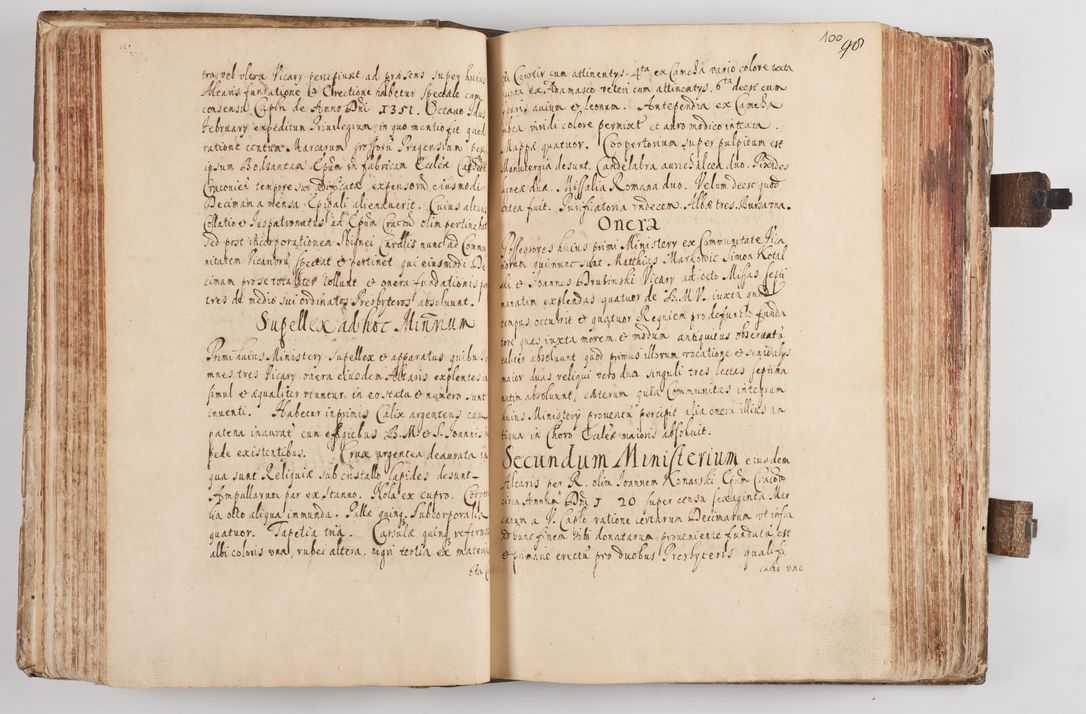 vel ultra Vicarÿ percipiunt ad præsens super huius
Altaris fundatione et Erectione habetur speciale cum
consensu Capli de Anno Dni 1351. Octavo Idus
February expeditum Privilegium, in quo mentio fit quod
ratione centum Marcarum grossorũ Pragensium per
ipsum Bodsantam Epum in fabricam Eccliæ
Cracovien tempore sui expensorũ eiusmodi
Decimam a mensa Epipali alienaverit. Cuius
Collatio et Juspatronatus ad Epum Cracov olim
sed post incorporationem Sbignei Cardlis nunc ad Commu
nitatem Vicariorũ spectat et pertinet, qui eiusmodi De
cimam pro se totaliter tollunt et onera fundationis
tres de medio sui ordinatos Presbyteros absolvunt.
Supellex ad hoc Mins̄rium
Primi huius Ministerÿ Supellex et apparatus quibus
mnes tres Vicarÿ onera eiusdem Altaris explentes
simul et æqualiter utuntur, in eo stata et numero sunt
inventi. Habetur inprimis Calix argenteus cum
patena inaurat cum effigiebus B. M. et S. Joannis
pede existentibus. Crux argentea deaurata in
qua sunt Reliquiæ sub cristallo lapides desunt.
Ampullarum par ex Stanno. Nola ex cupro.
lia otto aliqua immunda. Pallæ quinq. Subcorporalia
quatuor. Tapetia tria. Casulæ quinq
albi coloris una, rubei altera, nigri tertia ex materia
100
98
Cototiv cum attinentys. 4ta ex Camcha vario colore texta
ex Adamasco veteri cum attinentys. 6ta deest cum
avium et Leonum. Antependia ex Camcha
viridi colore permixt et auro modico intexta.
Mappæ quatuor. Coopertorium super pulpitum est
Manutergia desunt. Candelabra aurichalcea duo. Pixides
ligneæ duæ. Missalia Romana duo. Velum deest quod
antea fuit. Purificatoria undecem. Albæ tres. Bursa una.
Onera
Possessores huius primi Ministery ex Communitate Vica
riorum qui nunc sunt Matthias Markowic Simon Kotal
ski et Joannes Drubinski Vicary ad octo Missas septi
manatim explendas quatuor de B. M. V. iuxta quod
tempus occurrit et quatuor Requiem pro defuncto funda
tore quas iuxta morem et modum antiquitus observatũ
taliter absolvunt quod primus illorum vocatione et senior
maior duas reliqui vero duo singuli tres lectas septima
natim absolvunt, cæterum quia Communitas integrum
huius Ministerÿ proventũ percipit alia onera illius an
tiqua in Choro Eccliæ maioris absolvit.
Secundum Ministerium eiusdem
Altaris per R. olim Joannem Konarski Epum Cracov
circa Annum Dni 1 20 super censu sexaginta Mar
carum a V. Caplo ratione certarum Decimarum ut infra
ad hunc finem sibi donatarum proveniente fundatũ est
et primæve erectũ pro duobus Presbyteris qualifi
catis uno